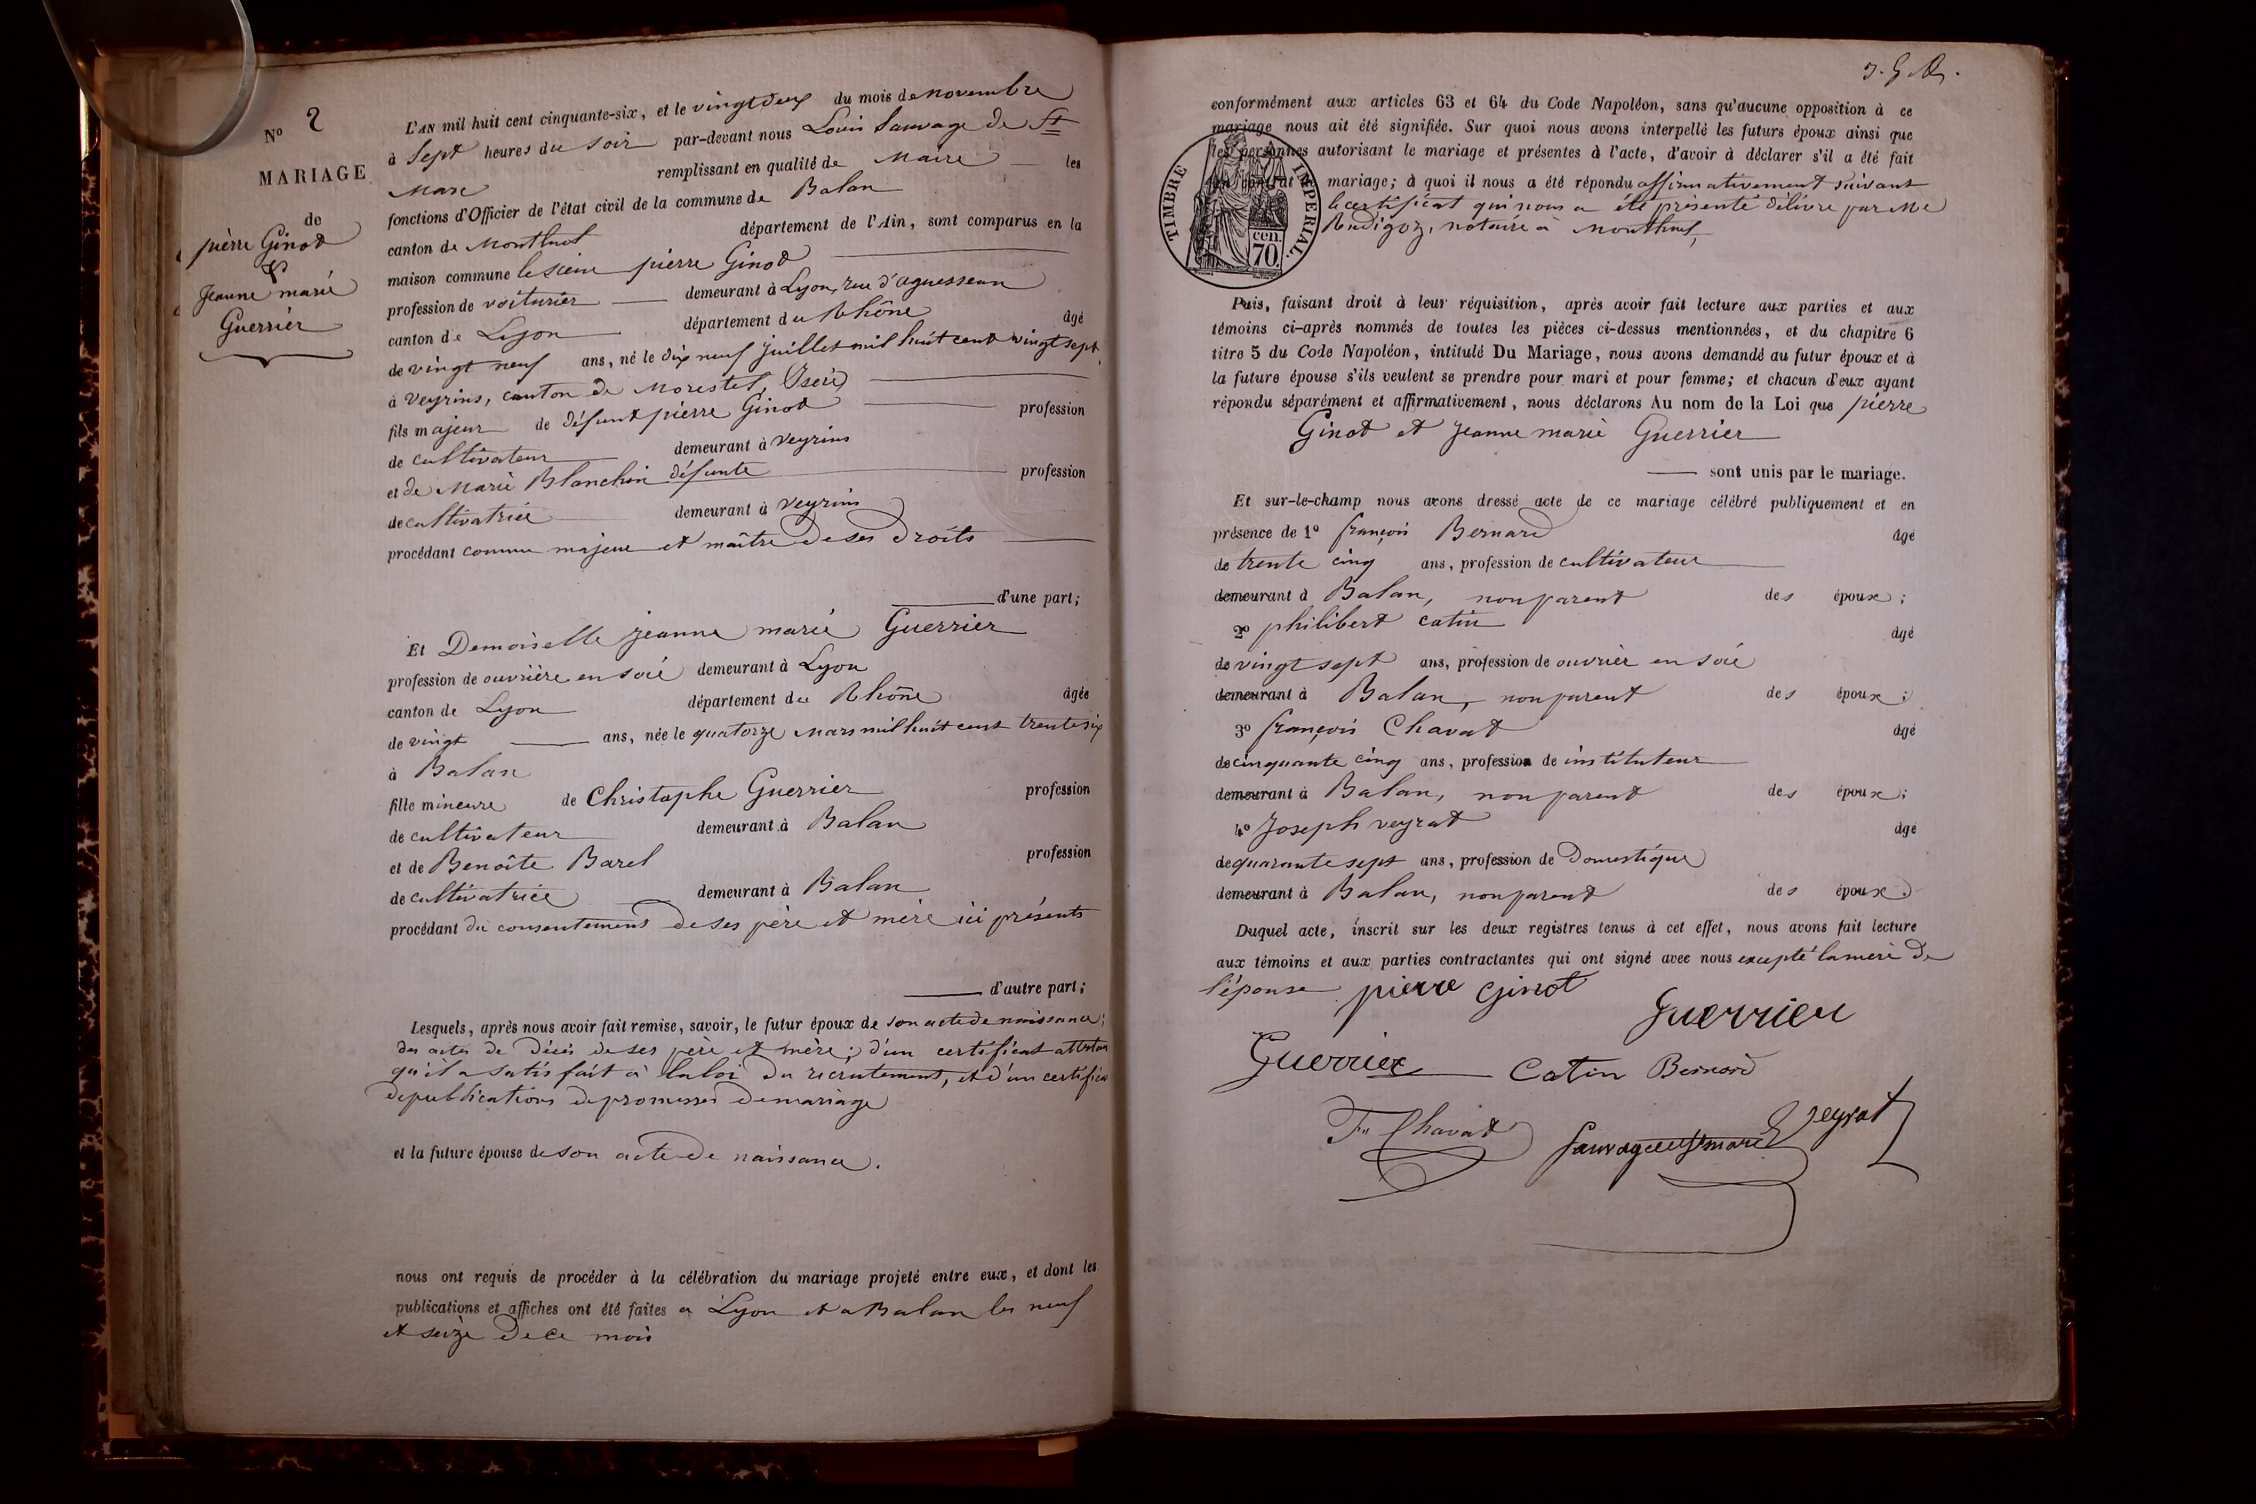 N° 2
MARIAGE
de
pierre Ginod
&
Jeanne marie
Guerrier
L'AN mil huit cent cinquante-six, et le vingt deux du mois de novembre
à Sept heures du soir par-devant nous Louis Sauvage de St
Marc remplissant en qualité de Maire les
fonctions d'Officier de l'état civil de la commune de Balan
canton de Montluel département de l'Ain, sont comparus en la
maison commune le sieur pierre Ginod
profession de voiturier demeurant à Lyon, rue d'aguesseau
canton de Lyon département du Rhône âgé
de vingt neuf ans, né le dix neuf juillet mil huit cent vingt sept,
à Veyrins, canton de Morestel, Isère
fils majeur de défunt pierre Ginod profession
de cultivateur demeurant à Veyrins
et de Marie Blanchin défunte profession
de cultivatrice demeurant à Veyrins
procédant comme majeur et maître de ses droits
d'une part;
Et Demoiselle Jeanne marie Guerrier
profession de ouvrière en soie demeurant à Lyon
canton de Lyon département du Rhône âgée
de vingt ans, née le quatorze Mars mil huit cent trente six
à Balan
fille mineure de Christophe Guerrier profession
de cultivateur demeurant à Balan
et de Benoîte Barel profession
de cultivatrice demeurant à Balan
procédant du consentement de ses père et mère ici présents
d'autre part;
Lesquels, après nous avoir fait remise, savoir, le futur époux de son acte de naissance;
des actes de décès de ses père et mère; d'un certificat attestan
qu'il a satisfait à la loi du recrutement, et d'un certificat
de publications de promesses de mariage
et la future épouse de son acte de naissance.
nous ont requis de procéder à la célébration du mariage projeté entre eux, et dont les
publications et affiches ont été faites à Lyon et a Balan les neuf
et seize de ce mois
conformément aux articles 63 et 64 du Code Napoléon, sans qu'aucune opposition à ce
mariage nous ait été signifiée. Sur quoi nous avons interpellé les futurs époux ainsi que
les personnes autorisant le mariage et présentes à l'acte, d'avoir à déclarer s'il a été fait
un contrat de mariage; à quoi il nous a été répondu affirmativement suivant
le certificat qui nous a été présenté délivré par Me
Rudigoz, notaire à Montluel,
TIMBRE IMPERIAL.
cen.
70.
Puis, faisant droit à leur réquisition, après avoir fait lecture aux parties et aux
témoins ci-après nommés de toutes les pièces ci-dessus mentionnées, et du chapitre 6
titre 5 du Code Napoléon, intitulé Du Mariage, nous avons demandé au futur époux et à
la future épouse s'ils veulent se prendre pour mari et pour femme; et chacun d'eux ayant
répondu séparément et affirmativement, nous déclarons Au nom de la Loi que pierre
Ginod et Jeanne marie Guerrier
sont unis par le mariage.
Et sur-le-champ nous avons dressé acte de ce mariage célébré publiquement et en
présence de 1° françois Bernard âgé
de trente cinq ans, profession de cultivateur
demeurant à Balan, non parent des époux;
2° philibert Catin âgé
de vingt sept ans, profession de ouvrier en soie
demeurant à Balan, non parent des époux;
3° françois Chavat âgé
de cinquante cinq ans, profession de instituteur
demeurant à Balan, non parent des époux;
4° Joseph veyrat âgé
de quarante sept ans, profession de Domestique
demeurant à Balan, non parent des époux.
Duquel acte, inscrit sur les deux registres tenus à cet effet, nous avons fait lecture
aux témoins et aux parties contractantes qui ont signé avec nous excepté la mère de
l'épouse
pierre Ginot
Guerrier
Guerrier Catin Bernard
Fs Chavat Sauvage de St marc Veyrat